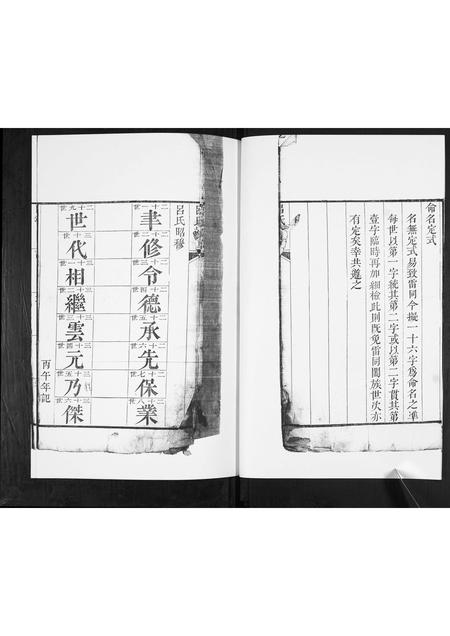 命名定式
名無定式易致雷同今擬一十六字爲命名之準
每世以第一字統其第二字或以第二字貫其第
壹字臨時再加細檢此則既免雷同闔族世次亦
有定矣幸共遵之
呂氏
呂氏昭穆
二十一世 聿 二十二世 修 二十三世 令 二十四世 德 二十五世 承 二十六世 先 二十七世 保 二十八世 業
二十九世 世 三十世 代 三十一世 相 三十二世 繼 三十三世 雲 三十四世 元 三十五世 乃 三十六世 傑
丙午年記